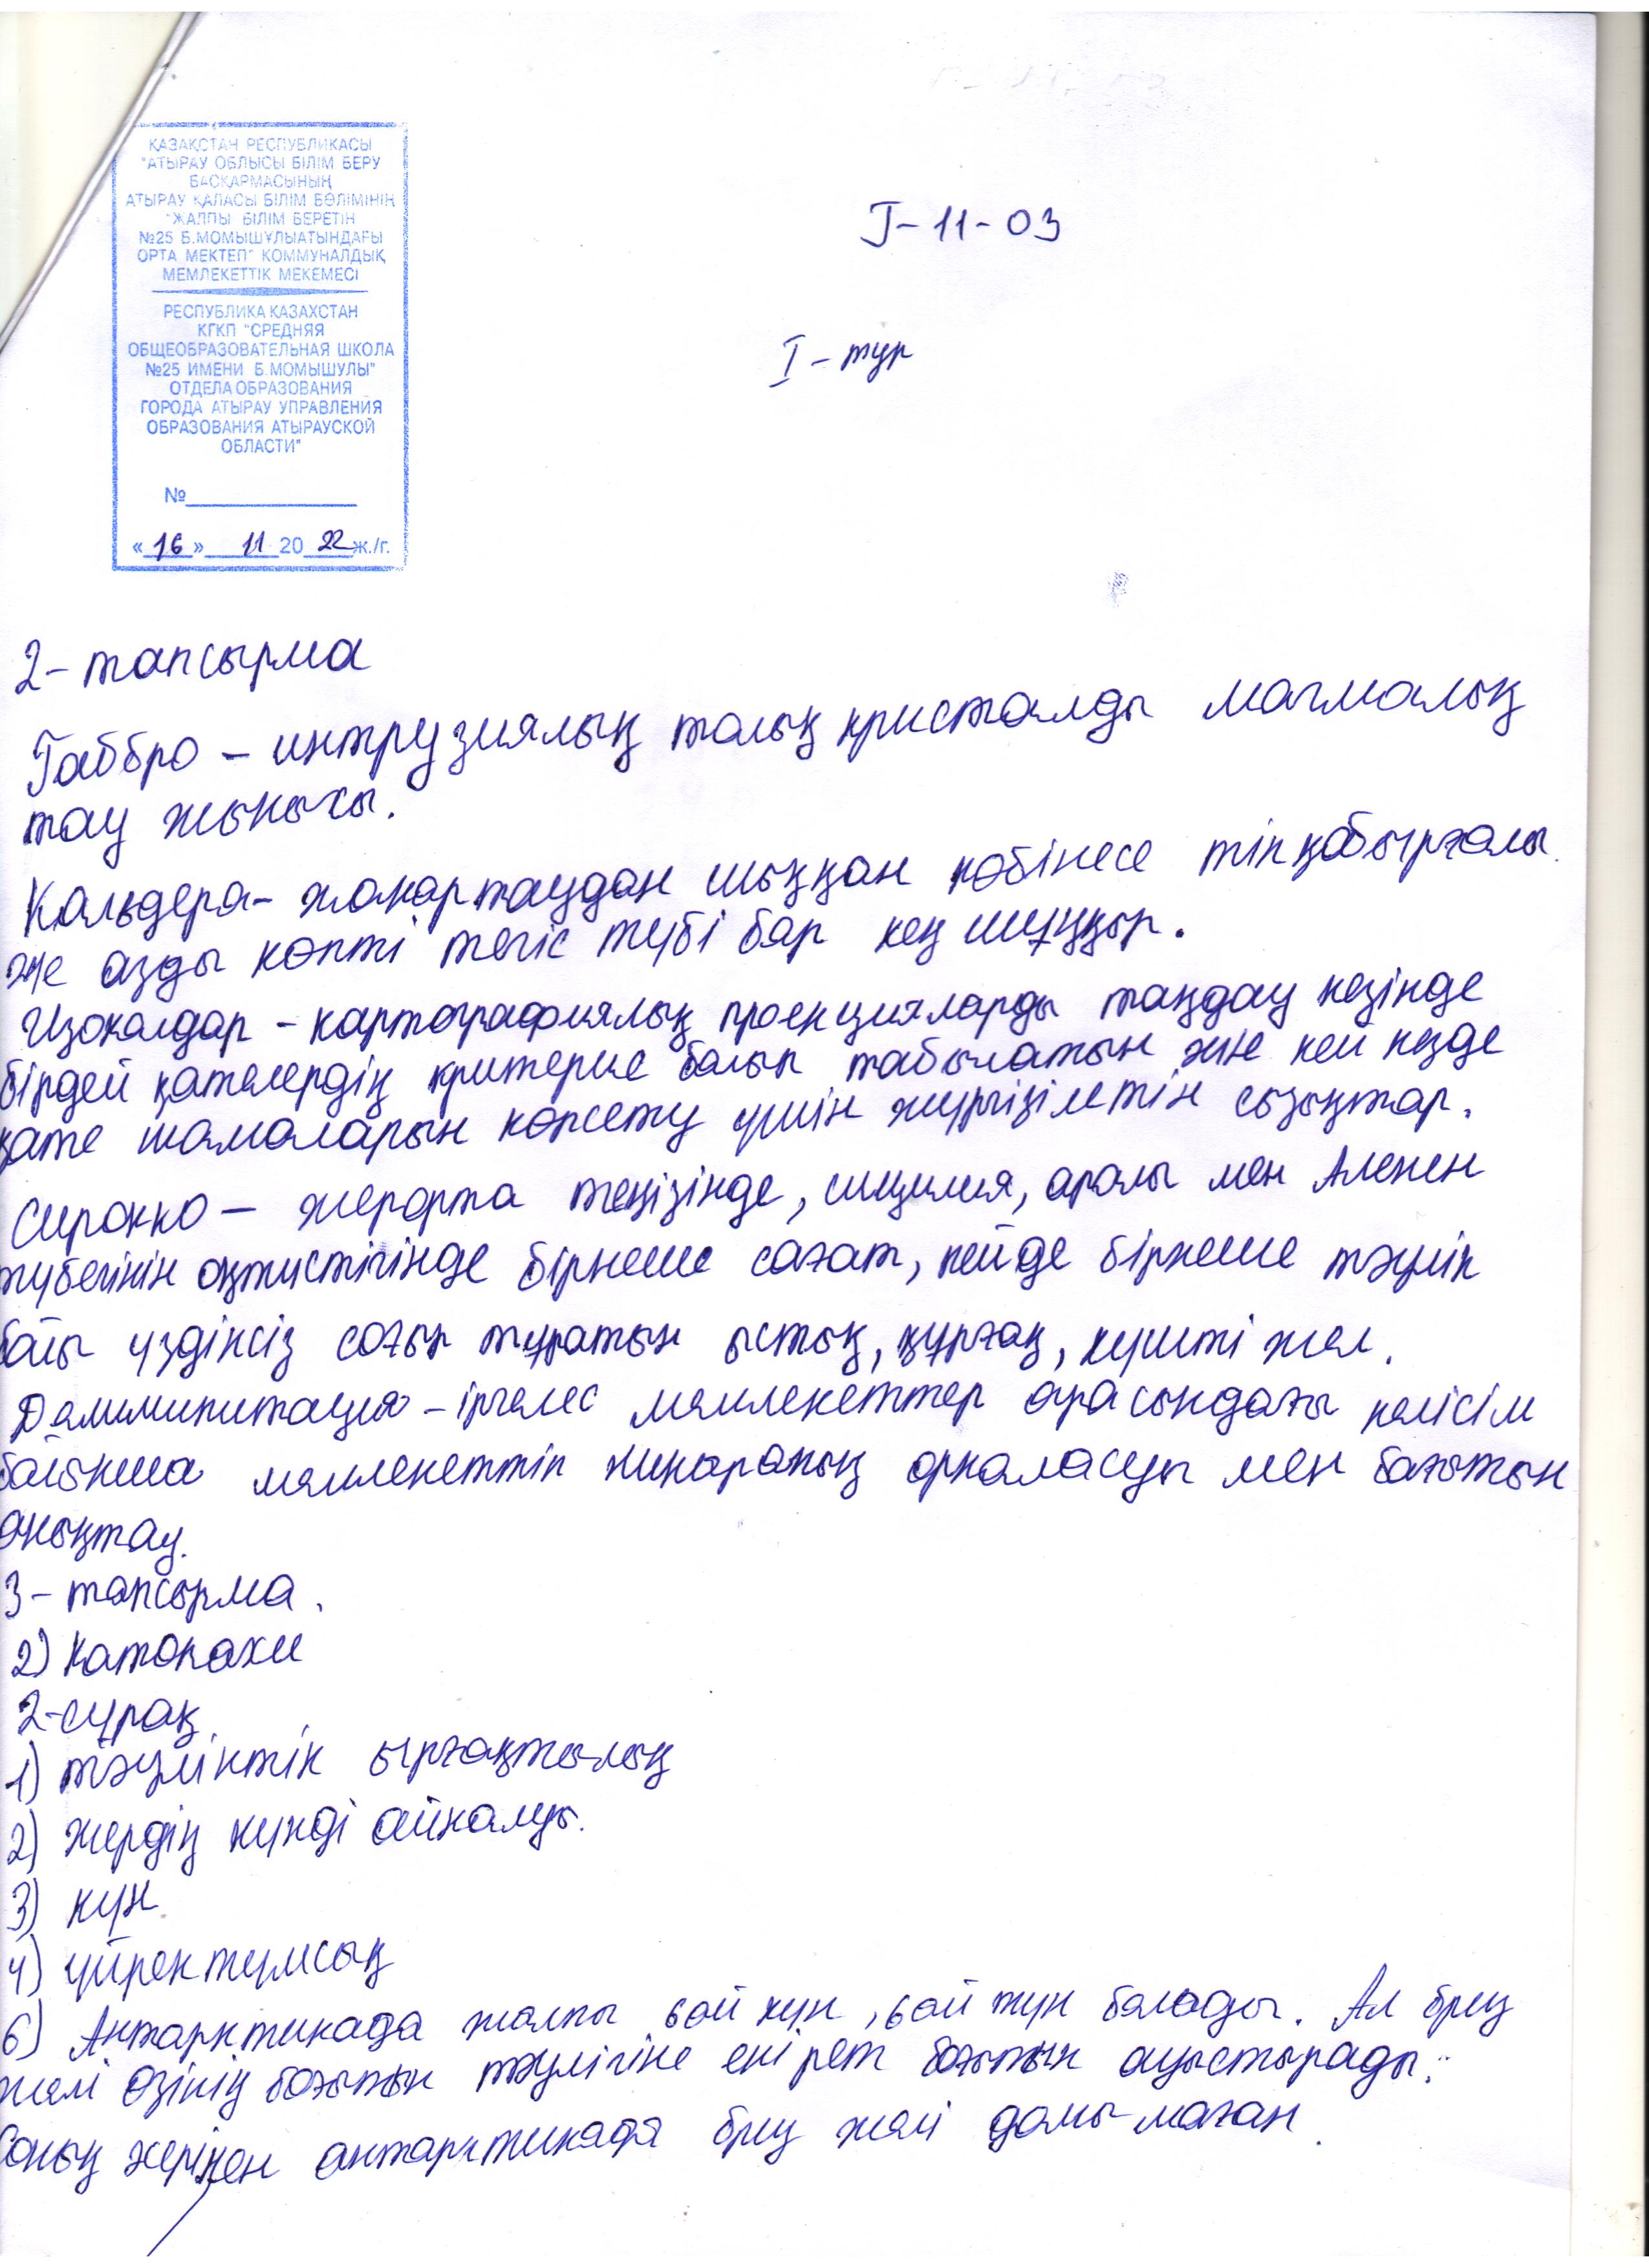 ҚАЗАҚСТАН РЕСПУБЛИКАСЫ
"АТЫРАУ ОБЛЫСЫ БІЛІМ БЕРУ
БАСҚАРМАСЫНЫҢ
АТЫРАУ ҚАЛАСЫ БІЛІМ БӨЛІМІНІҢ
"ЖАЛПЫ БІЛІМ БЕРЕТІН
№25 Б.МОМЫШҰЛЫАТЫНДАҒЫ
ОРТА МЕКТЕП" КОММУНАЛДЫҚ
МЕМЛЕКЕТТІК МЕКЕМЕСІ
РЕСПУБЛИКА КАЗАХСТАН
КГКП "СРЕДНЯЯ
ОБЩЕОБРАЗОВАТЕЛЬНАЯ ШКОЛА
№25 ИМЕНИ Б.МОМЫШУЛЫ"
ОТДЕЛА ОБРАЗОВАНИЯ
ГОРОДА АТЫРАУ УПРАВЛЕНИЯ
ОБРАЗОВАНИЯ АТЫРАУСКОЙ
ОБЛАСТИ"
№
«16» 11 20 22 ж./г.
J-11-03
I-тур
2-тапсырма
Габбро – интрузиялық толық кристалды магмалық
тау жынысы.
Кальдера- жанартаудан шыққан көбінесе тік қабырғалы
же азды көпті тегіс түбі бар кең шұңқыр.
Изоколдар – картографиялық проекцияларды таңдау кезінде
бірдей қателердің критерие болып табылатын және кей кезде
қате шамаларын көрсету үшін жүргізілетін сызықтар.
Сирокко – жерорта теңізінде, сицилия, аралы мен Апенен
түбегінін оңтүстігінде бірнеше сағат, кейде бірнеше тәулік
бойы үздіксіз соғып тұратын ыстық, құрғақ, күшті жел.
Делимитация – іргелес мемлекеттер арасындағы келісім
бойынша мемлекеттік шекараның орналасуы мен бағытын
анықтау.
3-тапсырма.
2) Катопахи
2-сұрақ
1) тәуліктік ырғақтылық
2) жердің күнді айналуы.
3) күн.
4) үйректұмсық
6) Антарктикада жалпы 6 ай күн, 6 ай түн болады. Ал бриз
желі өзінің бағытын тәулігіне екі рет бағытын ауыстырады.
Соның жерінен антарктикада бриз желі дамымаған.